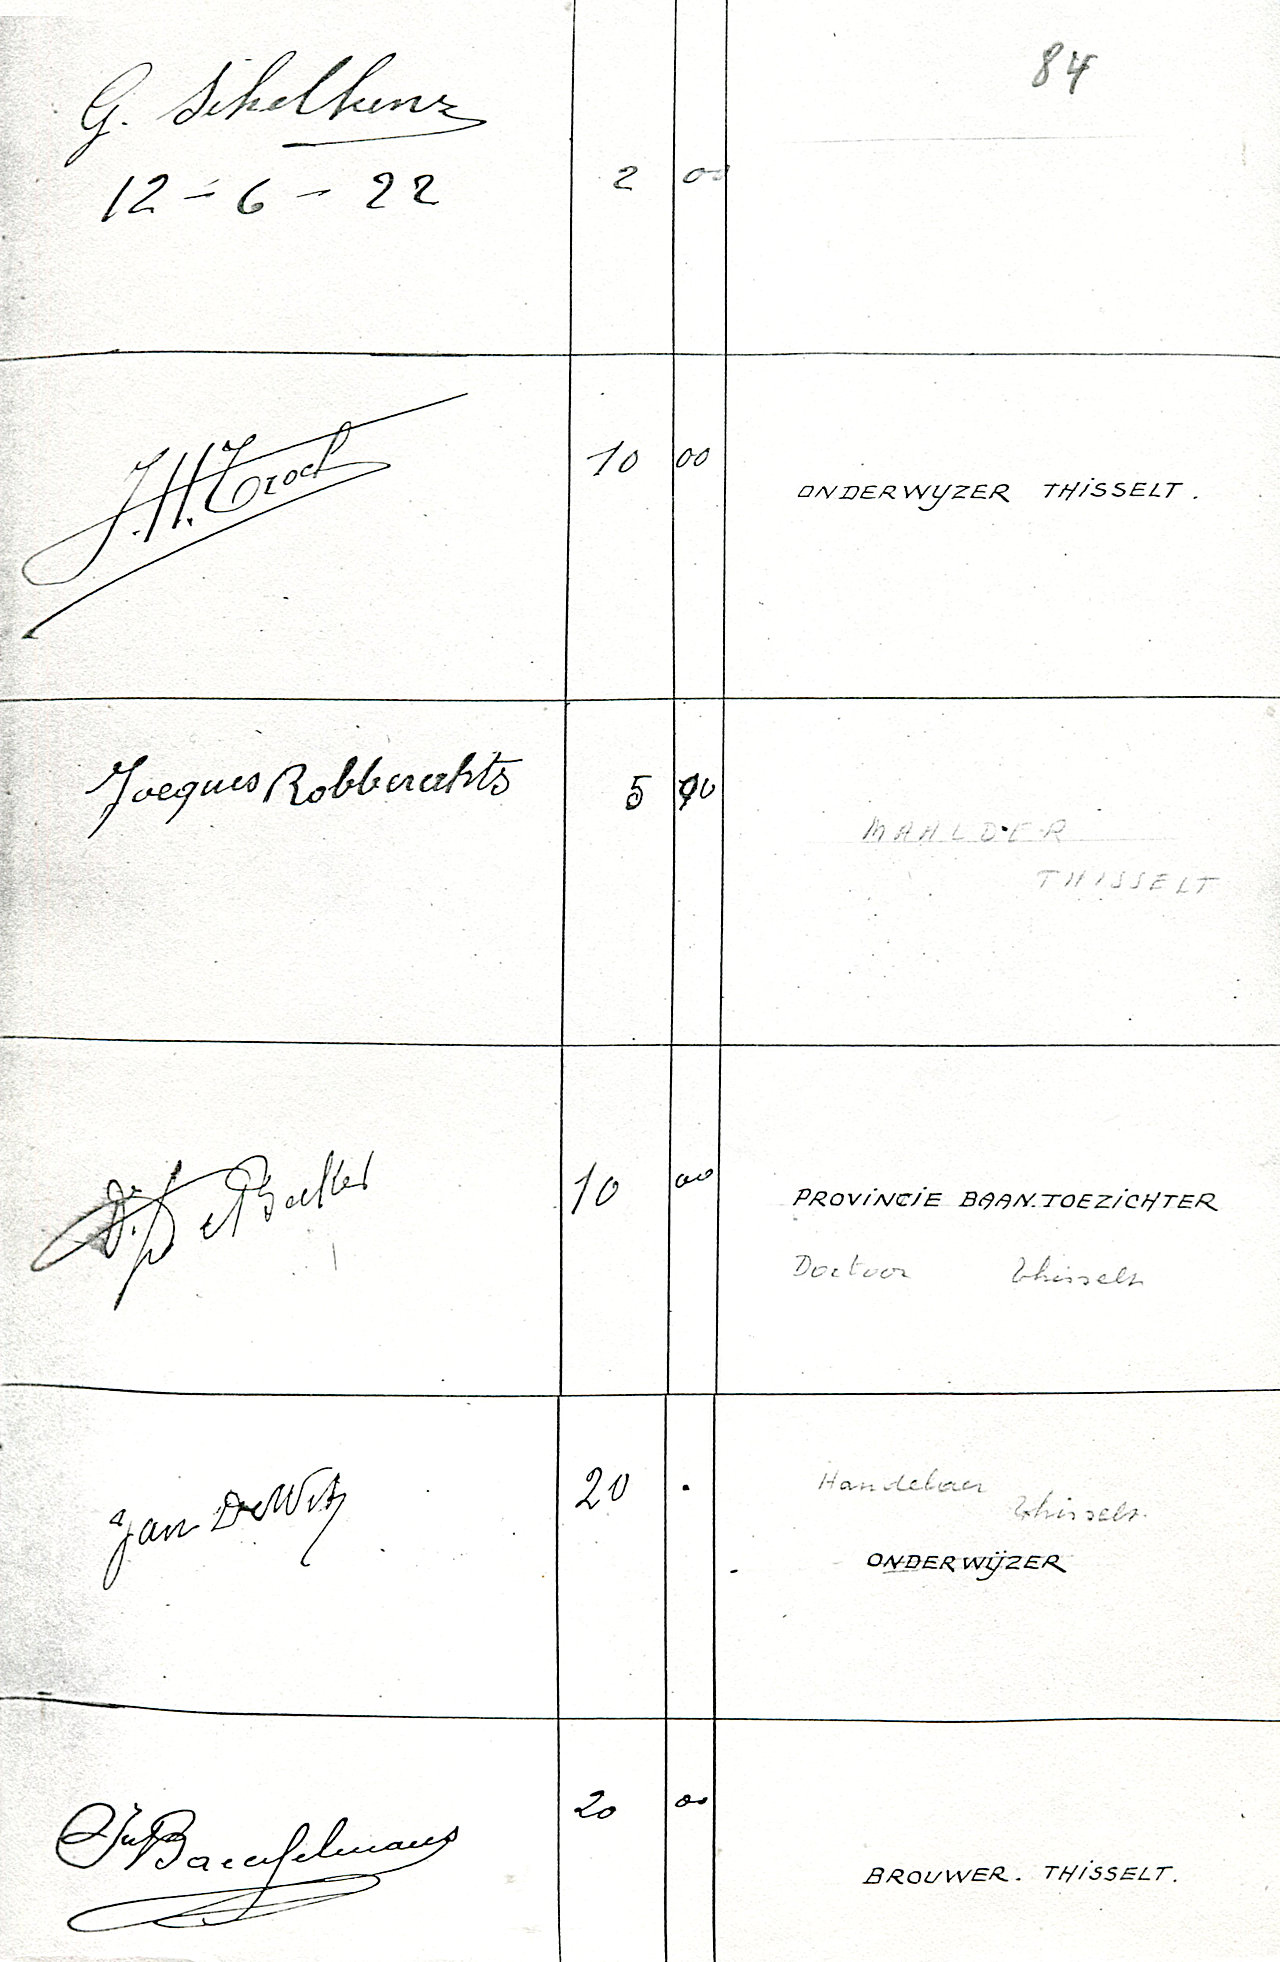 84
G. Sikelkenz
12 - 6 - 22 2 00
J.H. Troch 10 00 ONDERWYZER THISSELT.
Jacques Robberechts 5 00
MAALDER
THISSELT
Dr De Backer 10 00 PROVINCIE BAAN.TOEZICHTER
Doctoor Thisselt
Jan De Wit 20 . Handelaer
Thisselt
ONDERWIJZER
20 00
BROUWER. THISSELT.